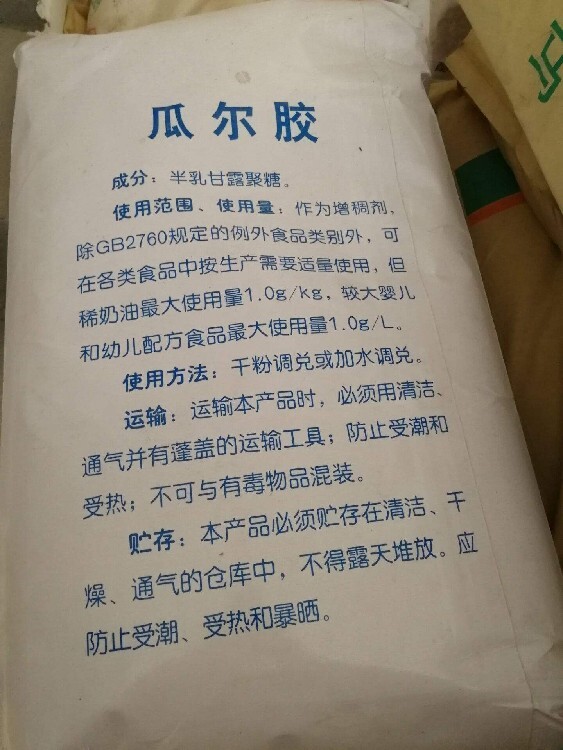 瓜尔胶
成分：半乳甘露聚糖。
使用范围、使用量：作为增稠剂，
除GB2760规定的例外食品类别外，可
在各类食品中按生产需要适量使用，但
稀奶油最大使用量1.0g/kg，较大婴儿
和幼儿配方食品最大使用量1.0g/L。
使用方法：干粉调兑或加水调兑。
运输：运输本产品时，必须用清洁、
通气并有蓬盖的运输工具；防止受潮和
受热；不可与有毒物品混装。
贮存：本产品必须贮存在清洁、干
燥、通气的仓库中，不得露天堆放。应
防止受潮、受热和暴晒。